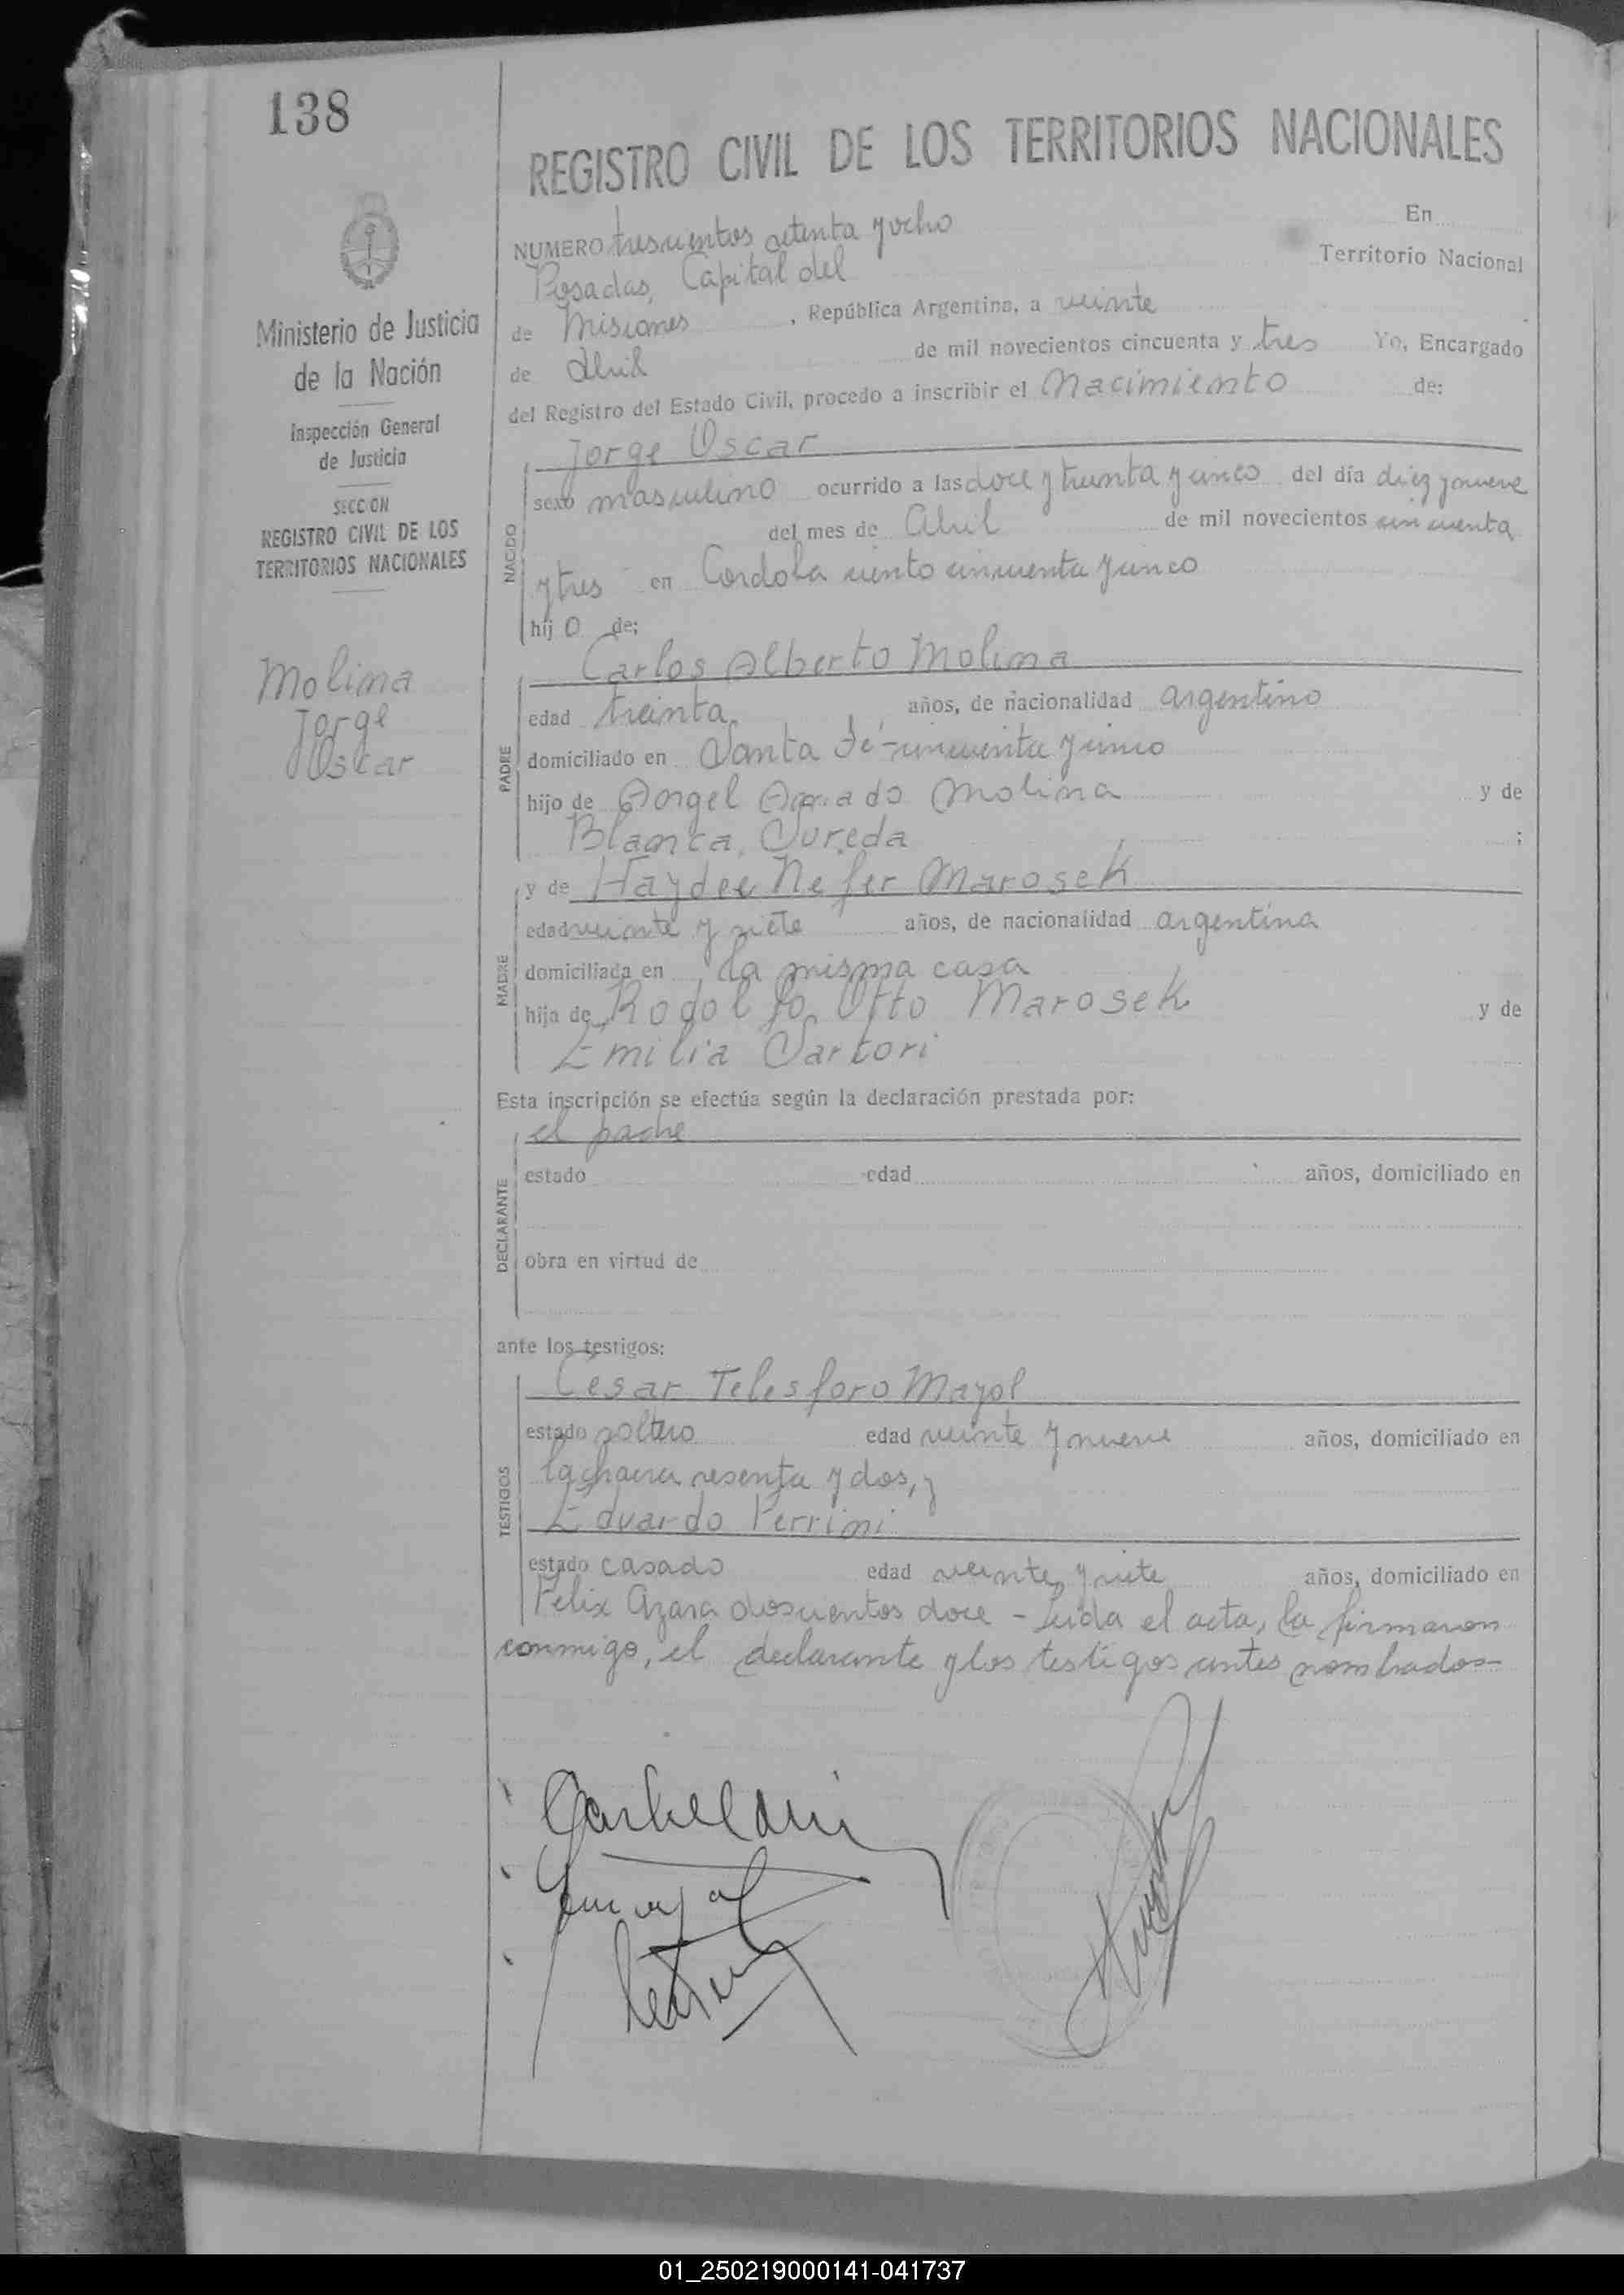 138
REGISTRO CIVIL DE LOS TERRITORIOS NACIONALES
Ministerio de Justicia
de la Nación
Inspección General
de Justicia
SECCION
REGISTRO CIVIL DE LOS
TERRITORIOS NACIONALES
Molina
Jorge
Oscar
NUMERO trescientos setenta y ocho En
Posadas, Capital del Territorio Nacional
de Misiones, República Argentina, a veinte
de Abril de mil novecientos cincuenta y tres Yo, Encargado
del Registro del Estado Civil, procedo a inscribir el Nacimiento de:
NACIDO
Jorge Oscar
sexo masculino ocurrido a las doce y treinta y cinco del día diez y nueve
del mes de Abril de mil novecientos cincuenta
y tres en Cordoba ciento cincuenta y cinco
hijo de:
PADRE
Carlos Alberto Molina
edad treinta años, de nacionalidad argentino
domiciliado en Santa Fé - cincuenta y cinco
hijo de Angel Amado Molina y de
Blanca Sureda ;
MADRE
y de Haydee Nefer Marosek
edad veinte y siete años, de nacionalidad argentina
domiciliada en la misma casa
hija de Rodolfo Otto Marosek y de
Emilia Sartori
Esta inscripción se efectúa según la declaración prestada por:
DECLARANTE
el padre
estado edad años, domiciliado en
obra en virtud de
ante los testigos:
TESTIGOS
Cesar Telesforo Mayol
estado soltero edad veinte y nueve años, domiciliado en
la chacra sesenta y dos, y
Eduardo Perrini
estado casado edad veinte y siete años, domiciliado en
Felix Azara doscientos doce - Leida el acta, la firmaron
conmigo, el declarante y los testigos antes nombrados-
01_250219000141-041737